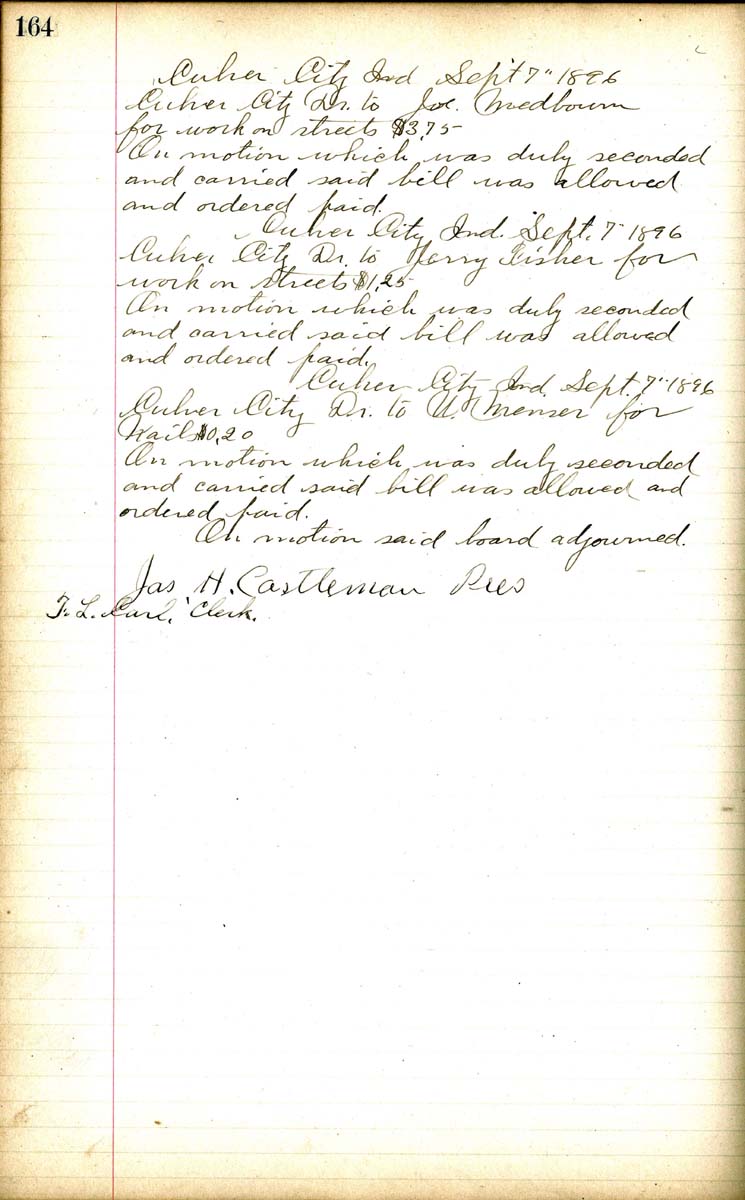 164
Culver City Ind Sept 7" 1896
Culver City Dr. to Joe. Medbourn
for work on streets $3.75
On motion which was duly seconded
and carried said bill was allowed
and ordered paid.
Culver City Ind. Sept. 7" 1896
Culver City Dr. to Jerry Fisher for
work on streets $1.25
On motion which was duly seconded
and carried said bill was allowed
and ordered paid.
Culver City Ind. Sept. 7" 1896
Culver City Dr. to U. Menser for
Nails $0.20
On motion which was duly seconded
and carried said bill was allowed and
ordered paid.
On motion said board adjourned.
Jas H. Castleman Pres
F. L. Carl, Clerk.